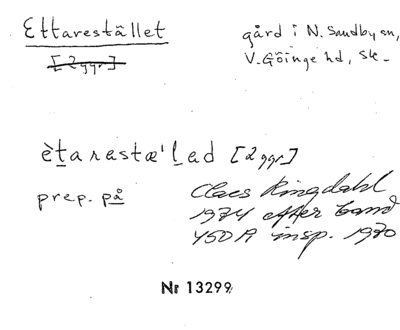 Ettarestället
gård i N. Sandby sn,
[2 ggr]
V. Göinge hd, Sk.
ètarastæ'led [2 ggr]
prep. på
Claes Ringdahl
1974 efter band
450 A insp. 1970
Nr 13299